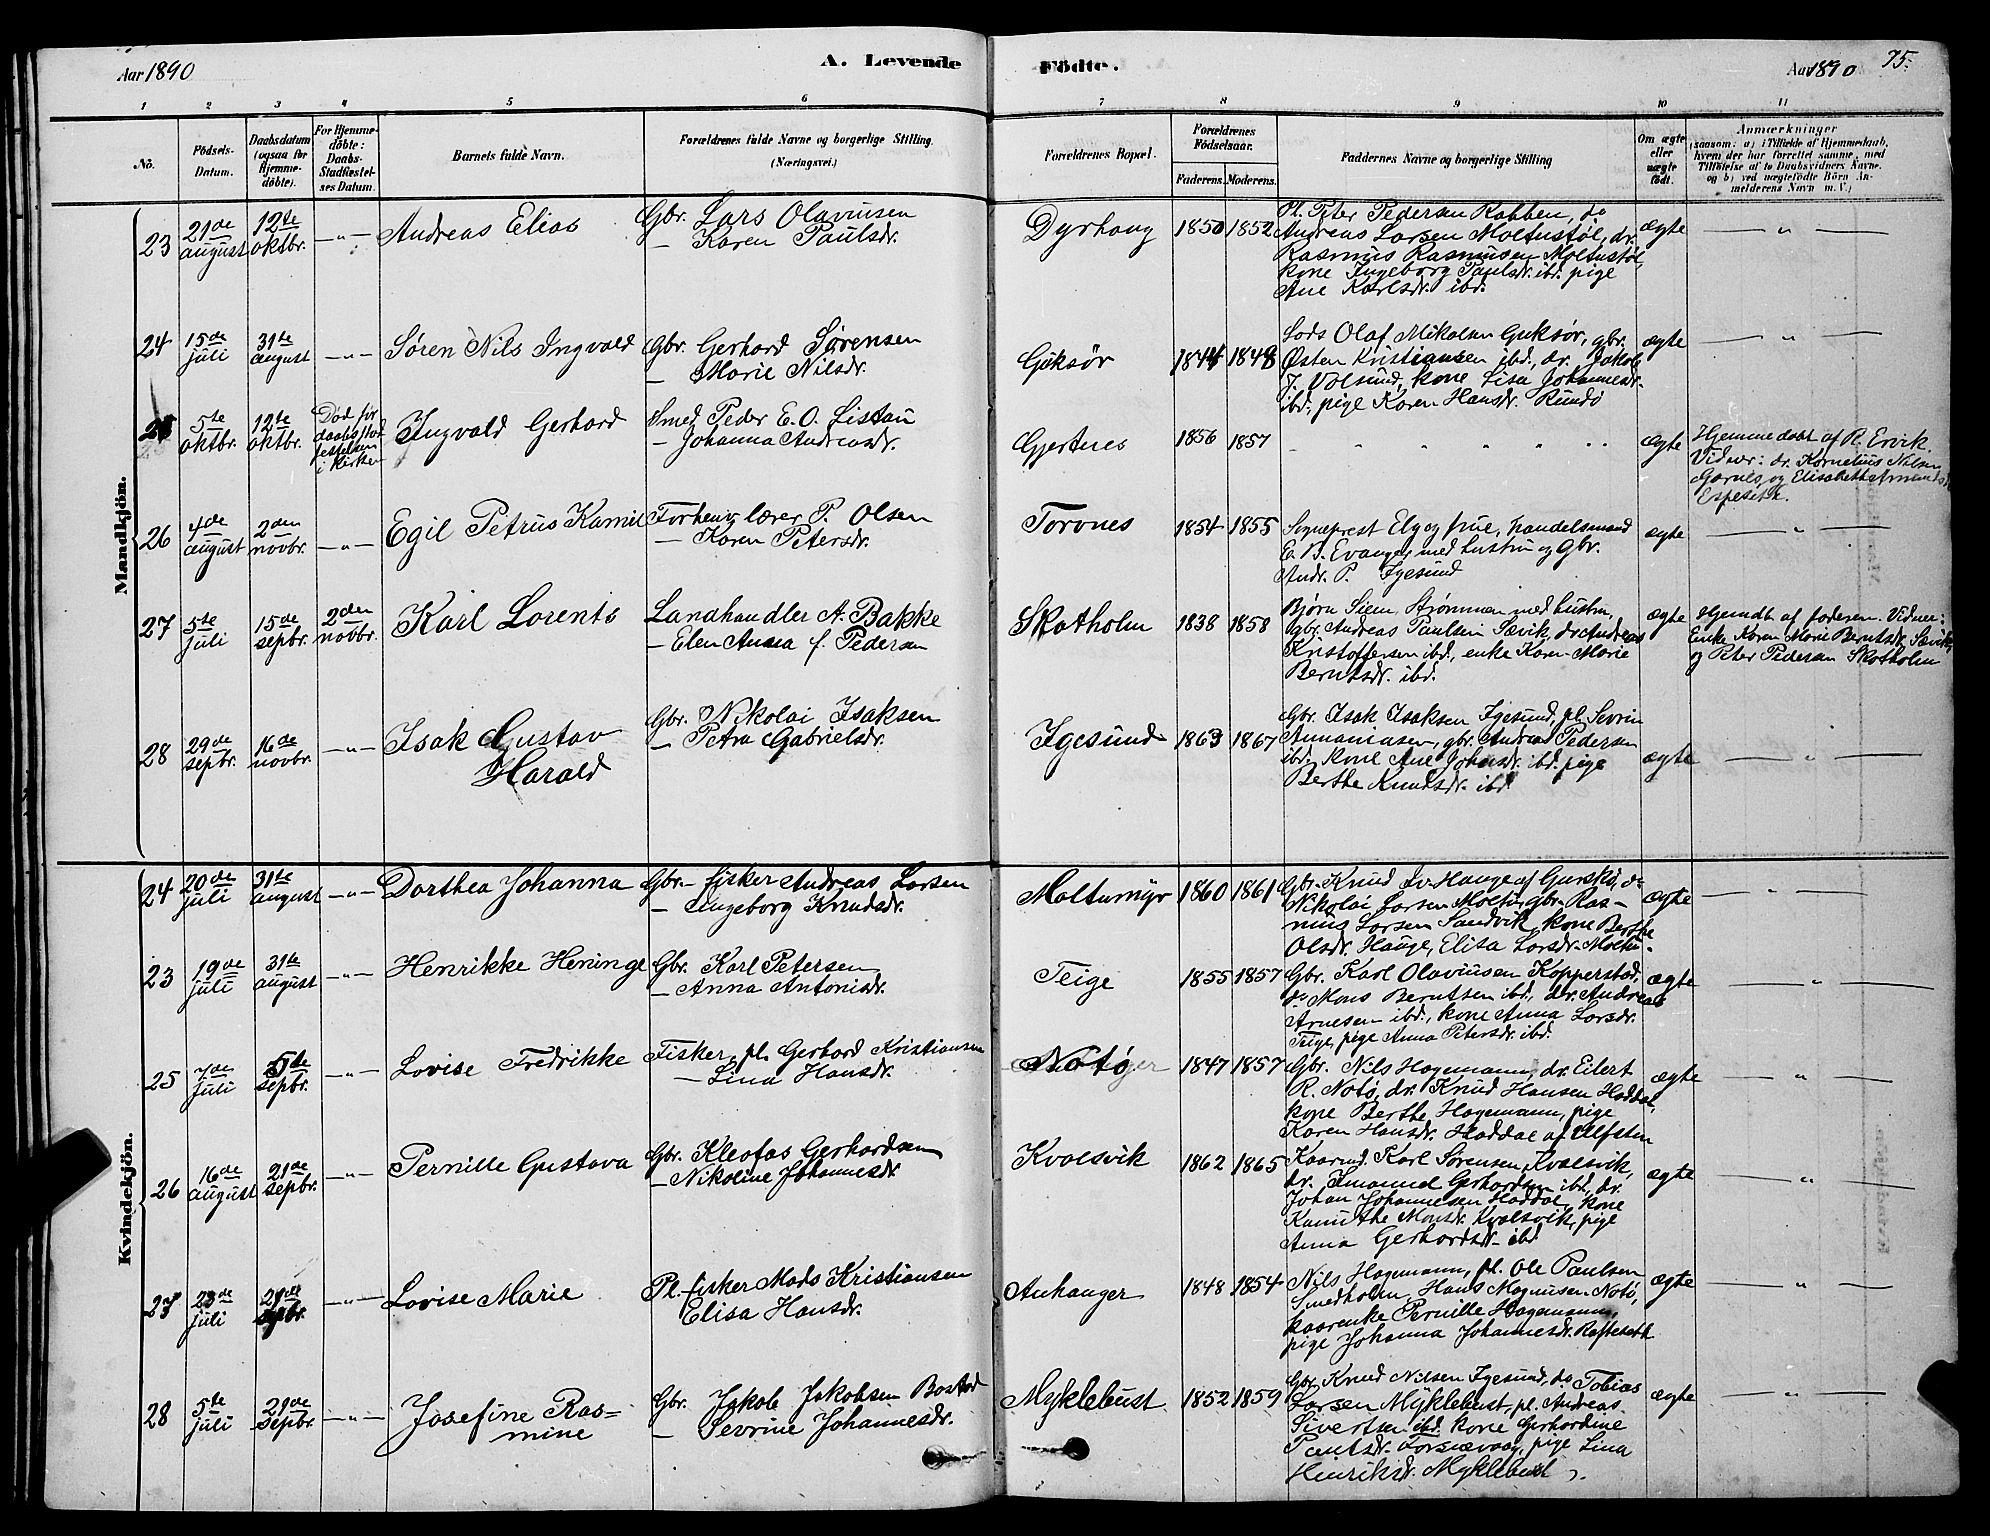 Aar 1890
A. Levende
Födte.
Aar 1890
75.
1 2 3 4 5 6 7 8 9 10 11
Nö.
Födsels-
Datum.
Daabsdatum
(ogsaa for
Hjemme-
döbte).
For Hjemme-
döbte:
Daabs-
Stadfæstel-
ses Datum.
Barnets fulde Navn.
Forældrenes fulde Navne og borgerlige Stilling.
(Næringsvei.)
Forældrenes Bopæl.
Forældrenes
Födselsaar.
Faderens. Moderens.
Faddernes Navne og borgerlige Stilling
Om ægte
eller
uægte
födt.
Anmærkninger
(saasom: a) i Tilfælde af Hjemmedaab,
hvem der har forrettet samme, med
Tilföielse af to Daabsvidners Navne.
og b) ved uægtefödte Börn An-
melderens Navn m. V.)
Mandkjön.
23
21de
august
12te
oktbr.
— " —
Andreas Elias
Gbr. Lars Olaviusen
— Karen Paulsdr.
Dyrhaug
1850 1852
Pl. Peter Pedersen Rabben, do
Andreas Larsen Moltustøl, dr.
Rasmus Rasmussen Moltustøl,
kone Ingeborg Paulsdr. ibd. pige
Ane Karlsdr. ibd.
ægte
— " —
24
15de
juli
31te
august
— " —
Søren Nils Ingvald
Gbr. Gerhard Sørensen
— Marie Nilsdr.
Gjøksør
1844 1848
Lods Olaf Mikalsen Gjøksør, gbr.
Østen Kristiansen ibd., dr. Jakob
J. Volsund, kone Lisa Johannesdr.
ibd., pige Karen Hansdr. Rundø
ægte
— " —
25
5te
oktbr.
12te
oktbr.
Død før
daabsstad
festelsen
i kirken
Ingvald Gerhard
Smed Peder E. O. Listau
— Johanna Andreasdr.
Gjertnes
1856 1857
" " " " "
ægte
Hjemmedøbt af R. Ervik.
Vidner: dr. Kornelius Nilsen
Garnes, og Elisabeth Amundsdr.
Espeseth.
26
4de
august
2den
novbr.
— " —
Egil Petrus Kamil
Forhenv. lærer P. Olsen
— Karen Petersdr.
Torvnes
1854 1855
Sogneprest Elg og frue, handelsmand
E. B. Evanger med hustru og Gbr.
Andr. P. Igesund
ægte
— " —
27
5te
juli
15de
sepbr.
2den
novbr.
Karl Lorents
Landhandler A. Bakke
— Elen Anna f. Pedersen
Skotholm
1838 1858
Bjørn Siem Strømmen med hustru
gbr. Andreas Paulsen Sævik, dr. Andreas
Kristoffersen ibd., enke Karen Marie
Berntsdr. ibd.
ægte
Hjemdt. af faderen. Vidner:
Enke Karen Marie Berntsdr. Sævik,
og Peter Pedersen Skotholm
28
29de
sepbr.
16de
novbr.
— " —
Isak Gustav
Harald
Gbr. Nikolai Isaksen
— Petra Gabrielsdr.
Igesund
1863 1867
Gbr. Isak Isaksen Igesund, pl. Sevrin
Annaniasen, gbr. Andreas Pedersen
ibd., kone Ane Johansdr. ibd. pige
Berthe Knudsdr. ibd.
ægte
— " —
Kvindekjön.
24
20de
juli
31te
august
— " —
Dorthea Johanna
Gbr. - fisker Andreas Larsen
— Ingeborg Knudsdr.
Moltumyr
1860 1861
Gbr. Knud Iv. Hauge af Gurskø, do
Nikolai Larsen Moltu, gbr. Ras-
mus Larsen Sandvik, kone Berthe
Olsdr. Hauge, Elisa Larsdr. Moltu.
ægte
— " —
23
19de
juli
31te
august
— " —
Henrikke Heninge
Gbr. Karl Petersen
— Anna Antonisdr.
Teige
1855 1857
Gbr. Karl Olaviusen Kopperstad,
do Mons Berntsen ibd., dr. Andreas
Arnesen ibd., kone Anna Larsdr.
Teige, pige Anna Petersdr. ibd.
ægte
— " —
25
7de
juli
5te
sepbr.
— " —
Lovise Fredrikke
Fisker, pl. Gerhard Kristiansen
— Lina Hansdr.
Notø
1847 1857
Gbr. Nils Hagemann, dr. Eilert
R. Notø, dr. Knud Hansen Haddal,
kone Berthe Hagemann, pige
Karen Hansdr. Haddal af Ulfsten
ægte
— " —
26
16de
august
21de
sepbr.
— " —
Pernille Gustava
Gbr. Kleofas Gerhardsen
— Nikoline Johannesdr.
Kvalsvik
1862 1865
Kaarmd. Karl Sørensen Kvalsvik,
dr. Imanuel Gerhardsen ibd., dr.
Johan Johannesen Haddal, kone
Kanutthe Monsdr. Kvalsvik, pige
Anna Gerhardsdr. ibd.
ægte
— " —
27
23de
juli
21de
sepbr.
— " —
Lovise Marie
Pl. fisker Mads Kristiansen
Elisa Hansdr.
Anhanger
1848 1854
Nils Hagemann, pl. Ole Paulsen
Smedholm, Hans Magnusen Notø,
kaarenke Pernille Hagemann,
pige Johanna Johannesdr. Rafteseth
ægte
— " —
28
5te
juli
21de
sepbr.
— " —
Josefine Ras-
mine
Gbr. Jakob Jakobsen Bostad
— Sevrine Johannesdr.
Myklebust
1852 1859
Gbr. Knud Nilsen Igesund, do Tobias
Larsen Myklebust, pl. Andreas
Sivertsen ibd. kone Gerhardine
Paulsdr. Torsnævaag, pige Lina
Henriksdr. Myklebust
ægte
— " —